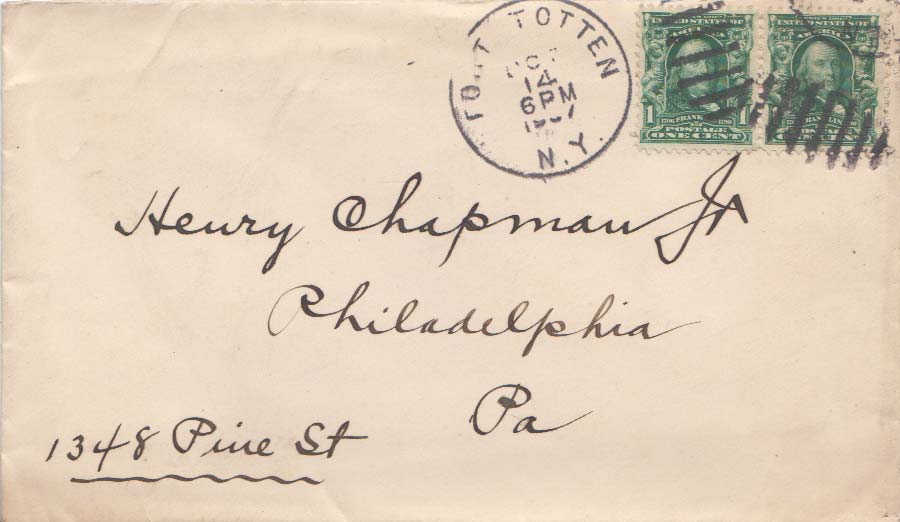 FORT TOTTEN
OCT
14
6PM
1907
N.Y.
SERIES 1902
UNITED STATES OF
AMERICA
1
1706 FRANKLIN 1790
POSTAGE
ONE CENT
SERIES 1902
UNITED STATES OF
AMERICA
1
1706 FRANKLIN
POSTAGE
ONE CENT
Henry Chapman Jr
Philadelphia
Pa
1348 Pine St